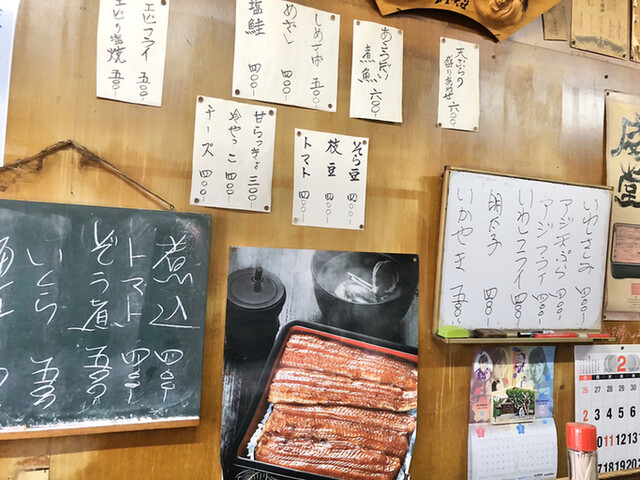 エビフライ 五〇〇-
エビの塩焼 五〇〇-
しめさば 五〇〇-
めざし 四〇〇-
塩鮭 四〇〇-
あこうだい
煮魚 六〇〇-
天ぷらの
盛り合わせ 六〇〇
甘らっきょ 三〇〇-
冷やっこ 四〇〇-
チーズ 四〇〇-
そら豆 四〇〇-
枝豆 四〇〇-
トマト 四〇〇-
煮込 四〇〇-
トマト 四〇〇-
どう煮 五〇〇-
いくら 五〇〇-
いわしさしみ 四〇〇-
アジ天ぷら 四〇〇-
アジフライ 四〇〇-
いわしフライ 四〇〇-
明太子 四〇〇-
いかやき 五〇〇-
2
26 27 28
2 3 4
9 10 11
16 17 18 19